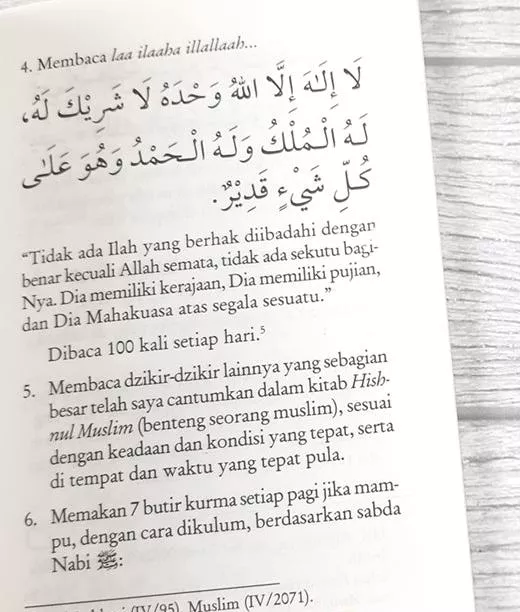 4. Membaca laa ilaaha illallaah...
لَا إِلَـٰهَ إِلَّا اللهُ وَحْدَهُ لَا شَرِيْكَ لَهُ،
لَهُ الْمُلْكُ وَلَهُ الْحَمْدُ وَهُوَ عَلَىٰ
كُلِّ شَيْءٍ قَدِيْرٌ.
“Tidak ada Ilah yang berhak diibadahi dengan
benar kecuali Allah semata, tidak ada sekutu bagi-
Nya. Dia memiliki kerajaan, Dia memiliki pujian,
dan Dia Mahakuasa atas segala sesuatu.”
Dibaca 100 kali setiap hari.⁵
5. Membaca dzikir-dzikir lainnya yang sebagian
besar telah saya cantumkan dalam kitab Hish-
nul Muslim (benteng seorang muslim), sesuai
dengan keadaan dan kondisi yang tepat, serta
di tempat dan waktu yang tepat pula.
6. Memakan 7 butir kurma setiap pagi jika mam-
pu, dengan cara dikulum, berdasarkan sabda
Nabi ﷺ:
(IV/95), Muslim (IV/2071).